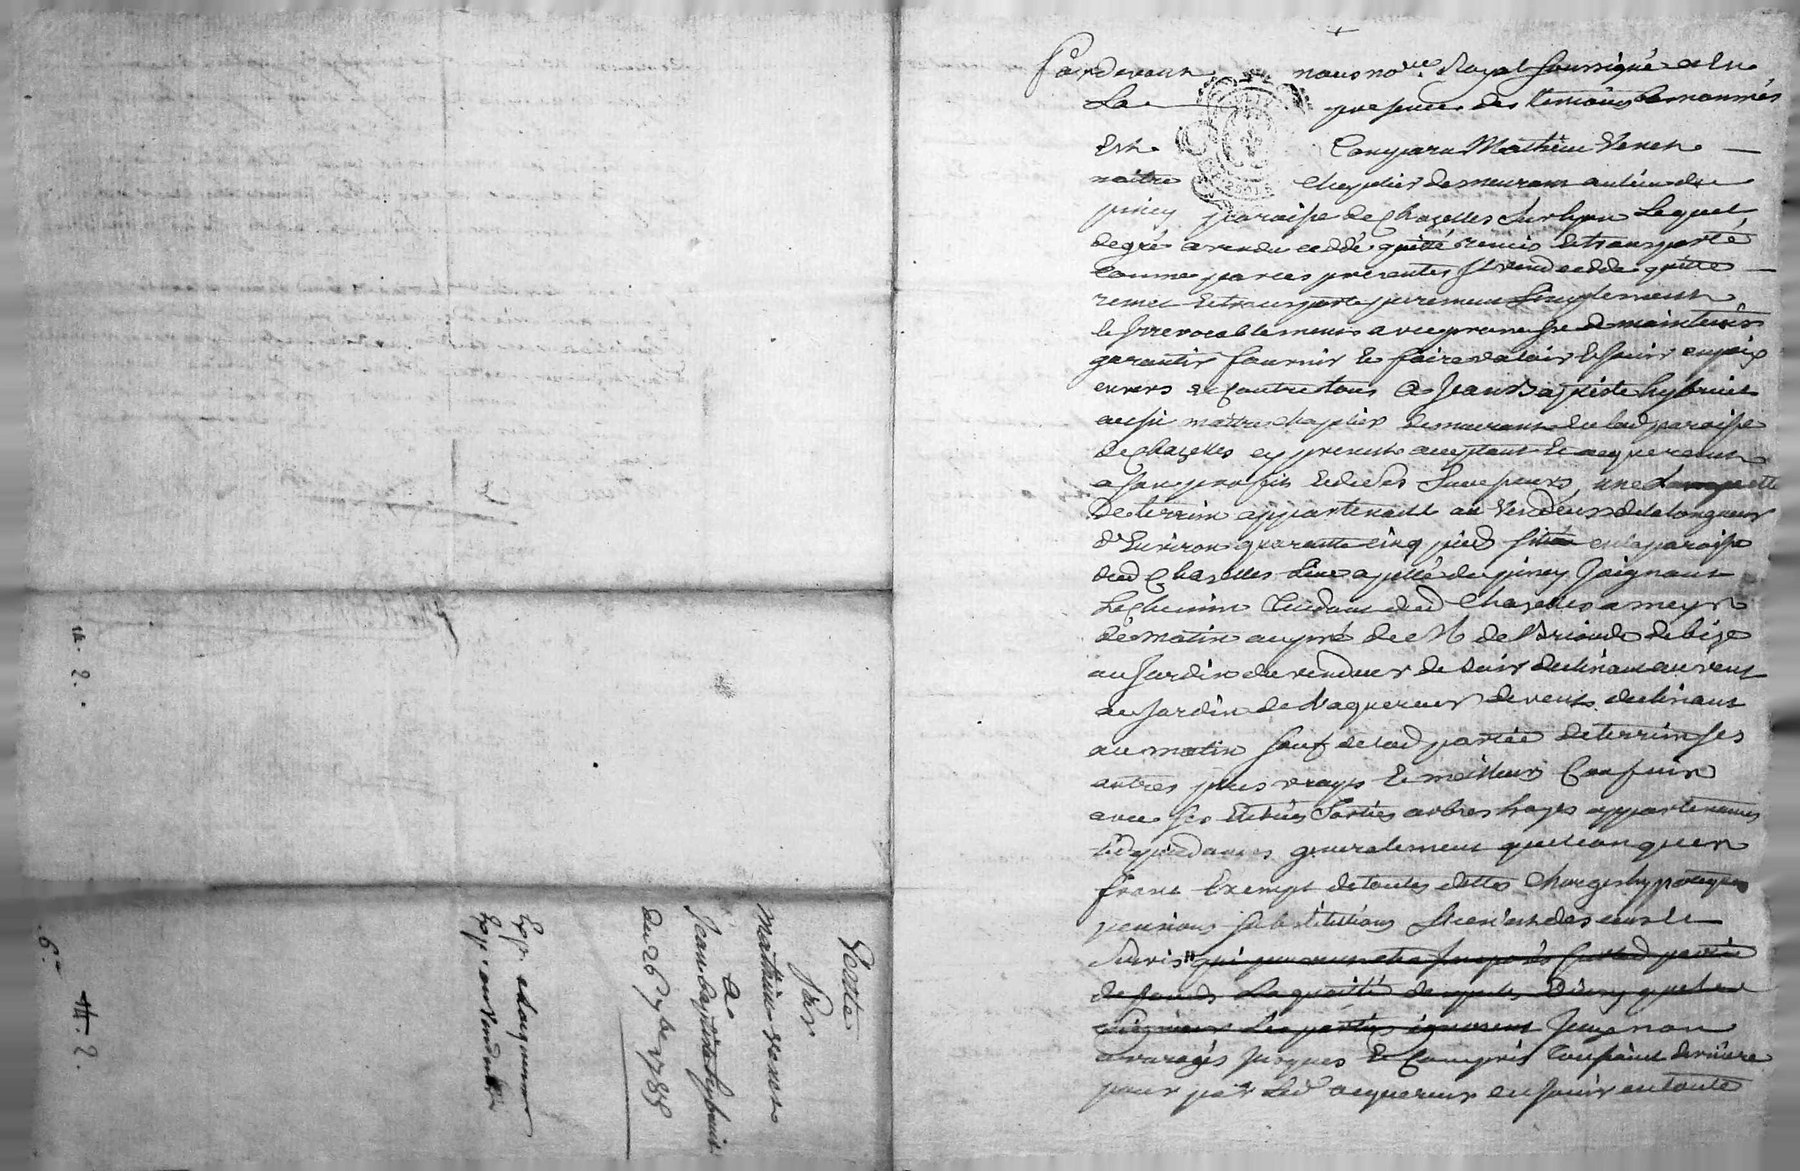 Pardevant nous no.re Royal soussigné et En
La presence des temoins bas nommés
Est Comparu Mathieu Venet
maitre Chapelier demeurant au lieu du
piney paroisse de Chazelles sur lyon Lequel
de gré a vendu ceddé quitté remis et transporté
comme par ces presentes Il vend cedde quitte
remet Et transporte purement Simplement
et Irrevocablement avec promesse de maintenir
garantir fournir Et faire valoir Et Jouir en paix
envers et Contre tous a Jean Baptiste
aussi maitre chapelier demeurant en lad paroisse
de Chazelles cy present acceptant Et acquereur
a son profit Et de ses Successeurs une
De terrin appartenant au Vendeur de la longueur
d'Environ quarante cinq pied située en la paroisse
dud Chazelles Lieu appellé du piney Joignant
Le Chemin Tendant dud Chazelles a meys
de matin au pré de M de Brioude de bize
au Jardin du vendeur de Soir declinant au vent
au Jardin de l'aquereur de vent declinant
au matin sauf de lad partie de terrin ses
autres plus vrays Et meilleurs Confins
avec ses Entrées Sorties arbres hayes appartenances
Et dependances generalement quelconques
franc Exempt de toutes dettes Charges hypoteques
pensions substitutions
Servis
de fonds La quotité
Seigneur Les parties ignorent Jusqu'non
arrerages Jusques Et Compris
pour par Led acquereur en Jouir en toute
Vente
Par
Mathieu Venet
a
Jean Baptiste
du 26 7bre 1788
Exp. a l'acquereur
Exp. au Vendeur